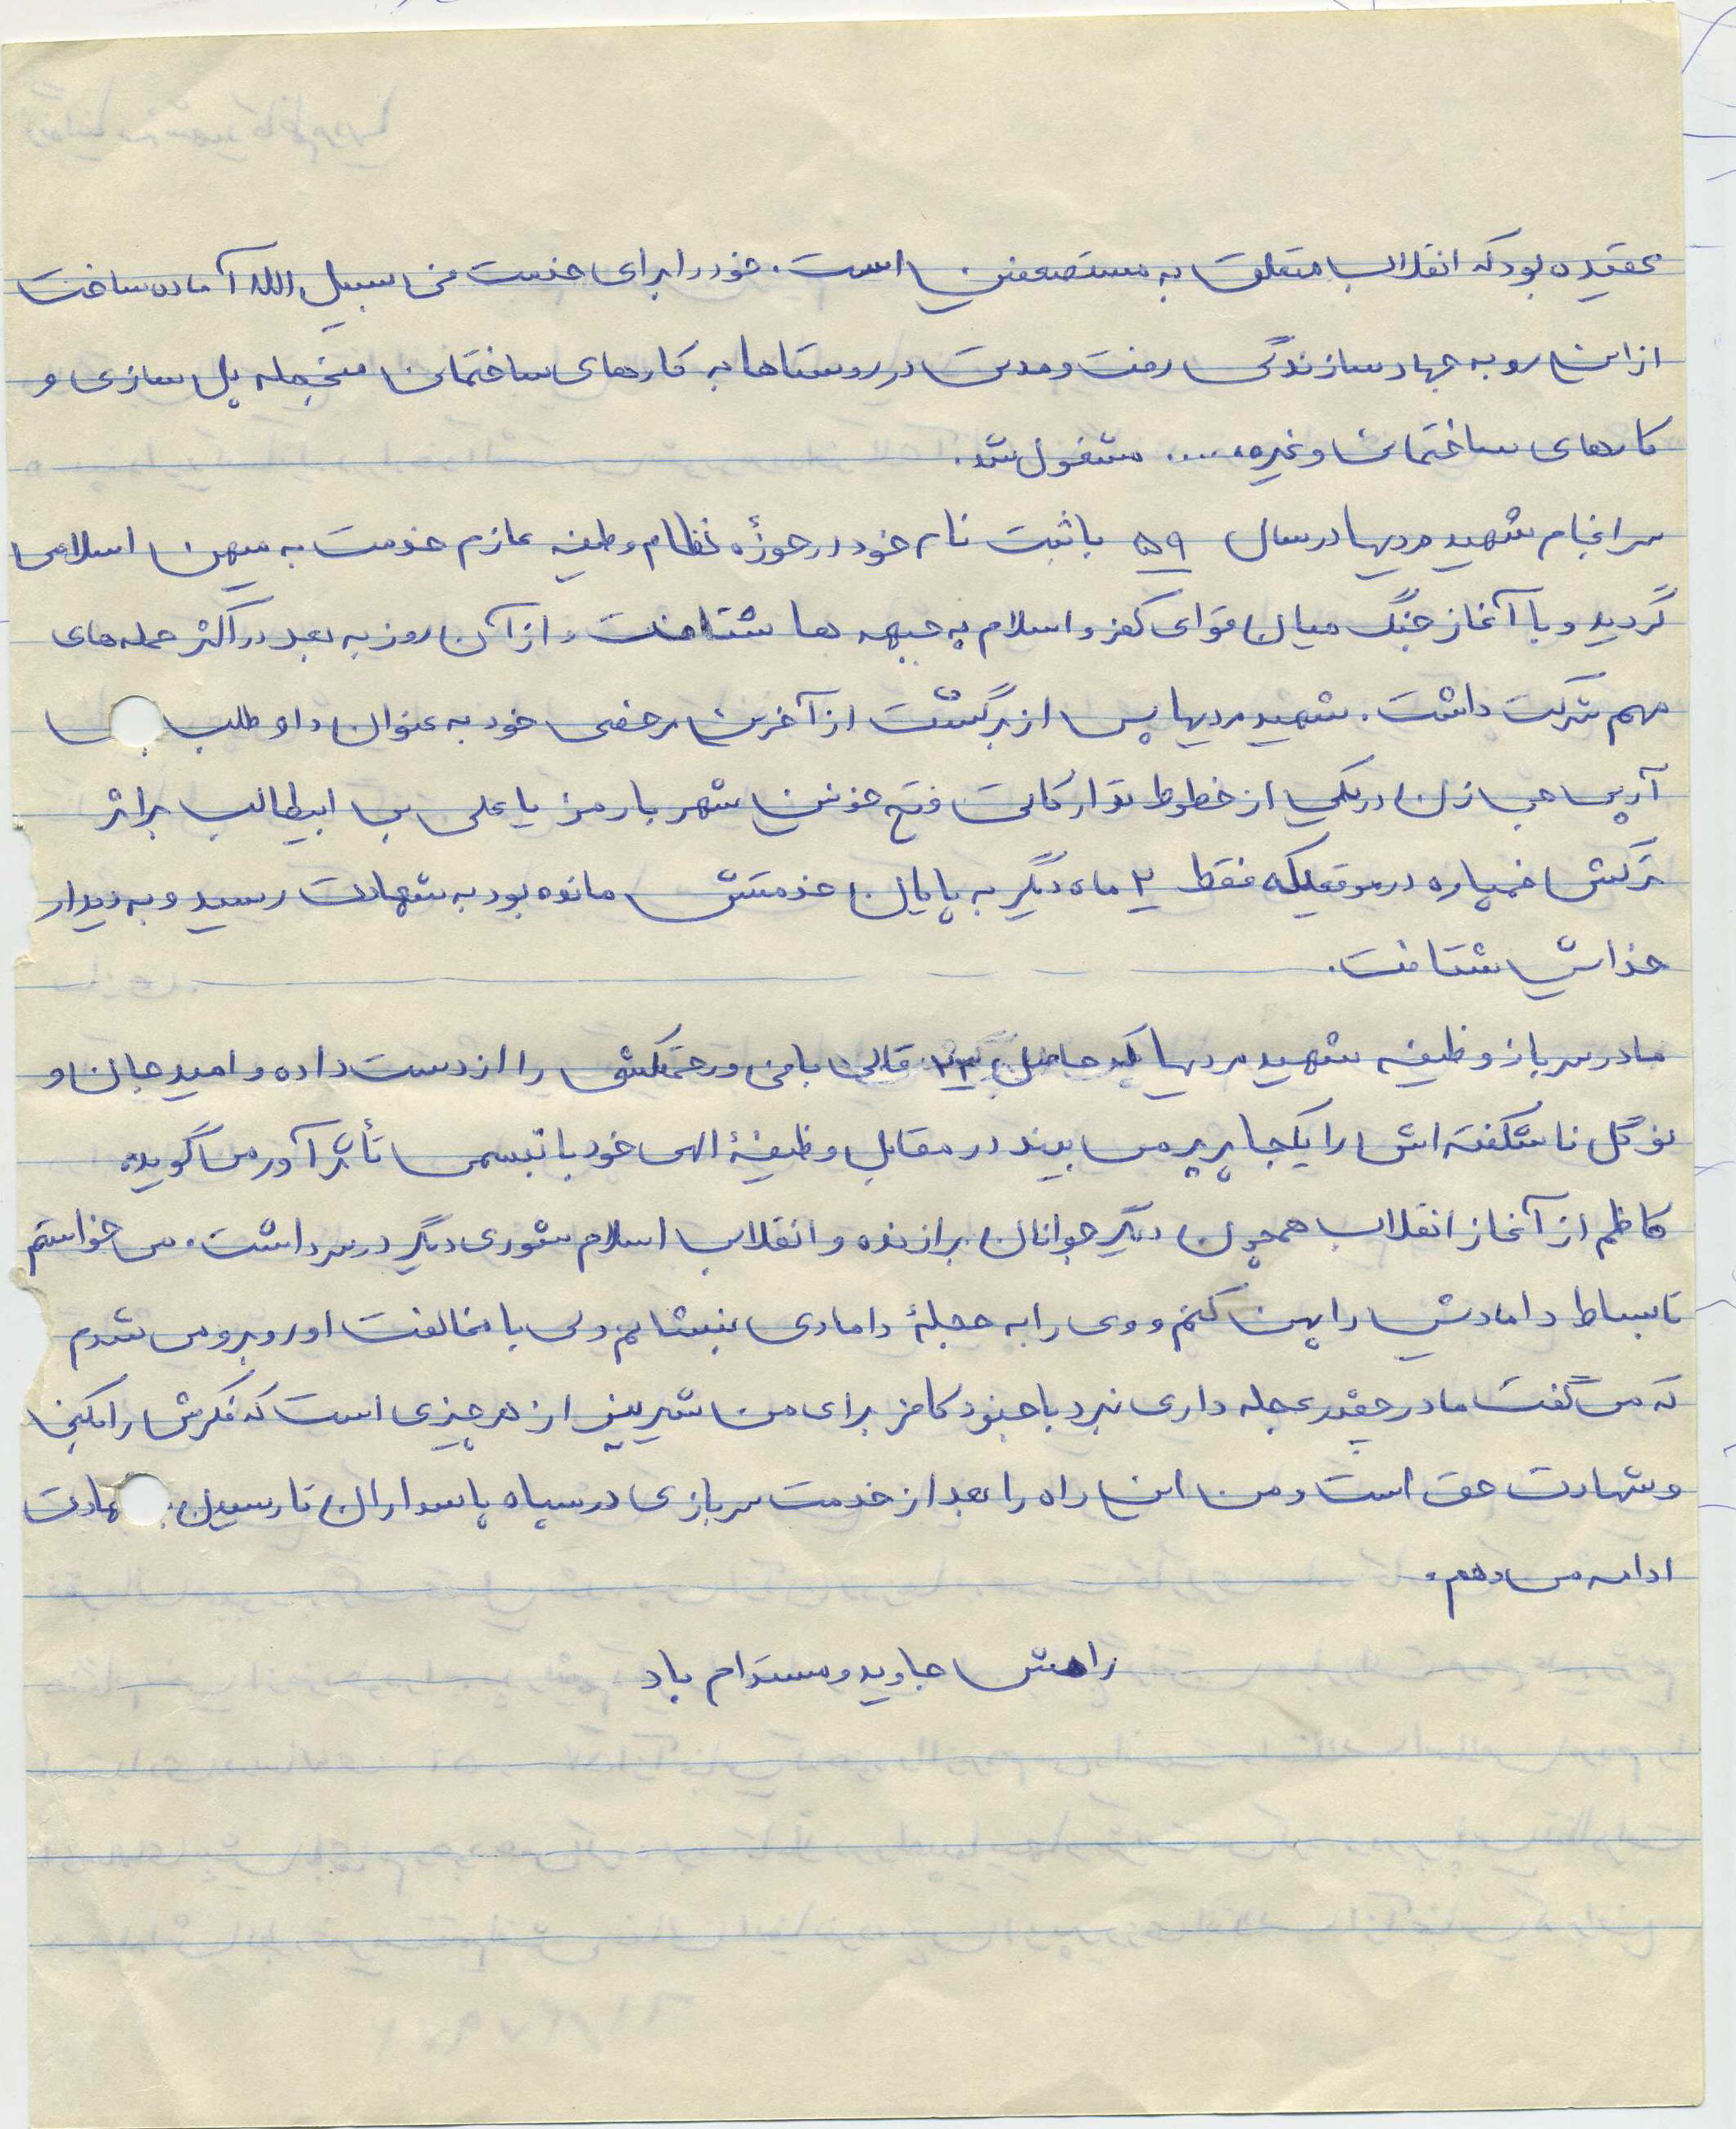 عقیده بود که انقلاب متعلق به مستضعفین است. خود را برای خدمت فی سبیل الله آماده ساخت
از این رو به جهاد سازندگی رفت و مدتی در روستاها به کارهای ساختمانی منجمله پل سازی و
کارهای ساختمانی و غیره .... مشغول شد.
سرانجام شهید مردیها در سال ۵۹ با ثبت نام خود در حوزه نظام وظیفه عازم خدمت به میهن اسلامی
گردید و با آغاز جنگ میان قوای کفر و اسلام به جبهه ها شتافت و از آن روز به بعد در اکثر حمله های
مهم شرکت داشت. شهید مردیها پس از برگشت از آخرین مرخصی خود به عنوان داوطلب
آرپی جی زن در یکی از خطوط تدارکاتی فتح خونین شهر با رمز یا علی بن ابیطالب بر اثر
ترکش خمپاره در موقعیکه فقط ۲ ماه دیگر به پایان خدمتش مانده بود به شهادت رسید و به دیدار
خدایش شتافت.
مادر سرباز وظیفه شهید مردیها که حاصل ۲۳ قالی بافی و زحمتکشی را از دست داده و امید جان و
نوگل ناشکفته اش را یکجا پرپر می بیند در مقابل وظیفهٔ الهی خود با تبسمی تأثر آور می گوید،
کاظم از آغاز انقلاب همچون دیگر جوانان برازنده و انقلاب اسلام شوری دیگر در سر داشت. می خواستم
تا بساط دامادیش را پهن کنم و وی را به حجلهٔ دامادی بنشانم ولی با مخالفت او روبرو می شدم
که می گفت مادر چقدر عجله داری نبرد با جنود کافر برای من شیرین از هر چیزی است که فکرش را بکنی
و شهادت حق است و من این راه را بعد از خدمت سربازی در سپاه پاسداران تا رسیدن
ادامه می دهم.
راهش جاوید و مستدام باد